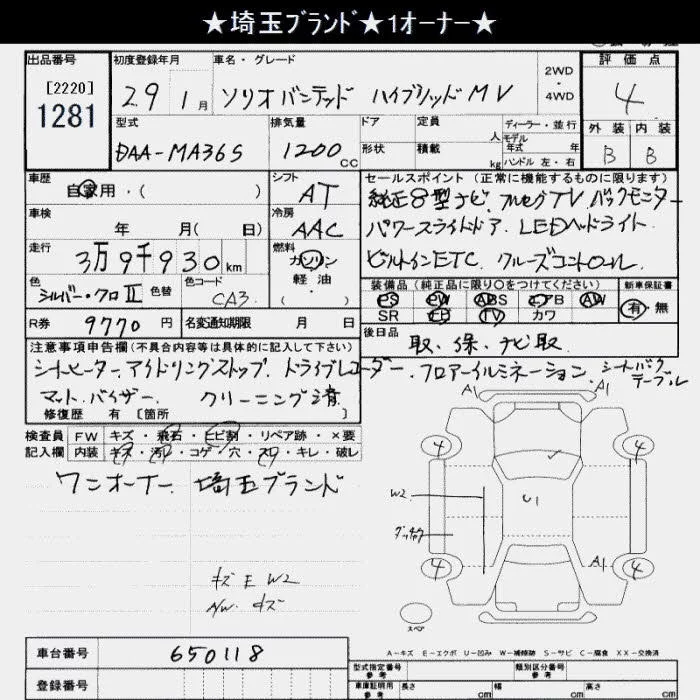 ★埼玉ブランド★1オーナー★
出品番号
[2220]
1281
初度登録年月
29 1月
車名・グレード
ソリオバンデッド ハイブリッドMV
2WD
・
4WD
評価点
4
外装 内装
B B
型式
DAA-MA36S
排気量
1200cc
ドア 定員 人
形状 積載 kg
ディーラー・並行
モデル年式 年
ハンドル 左・右
車歴
自家用・( )
シフト
AT
車検
年 月( 日)
冷房
AAC
走行
3万9千930km
燃料
ガソリン
軽油
( )
色
シルバー・クロII
色替
色コード
CA3
R券 9770円
名変通知期限 月 日
セールスポイント (正常に機能するものに限ります)
純正8型ナビ.フルセグTV バックモニター
パワースライドドア. LEDヘッドライト
ビルトインETC. クルーズコントロール
装備品(純正品に限り○をつけてください)
PS PW ABS エアB AW
SR エB TV カワ
新車保証書
有・無
後日品
取、保、ナビ取
注意事項申告欄(不具合内容等は具体的に記入して下さい)
シートヒーター.アイドリングストップ.ドライブレコーダー.フロアーイルミネーション.シートバックテーブル
マット.バイザー. クリーニング済
修復歴 有 [箇所
検査員 FW キズ・飛石・ヒビ割・リペア跡・×要
記入欄 内装 キズ・汚レ・コゲ・穴・スレ・キレ・破レ
ワンオーナー、埼玉ブランド
キズ E W2
A/W キズ
A1 A1
4 4
W2
U1
A1
4 4
スペア
A-キズ E-エクボ U-凹み W-補修跡 S-サビ C-腐食 XX-交換済
車台番号 650118
登録番号
型式指定番号参考
類別区分番号参考
車庫証明用参考 長さ cm 幅 cm 高さ cm